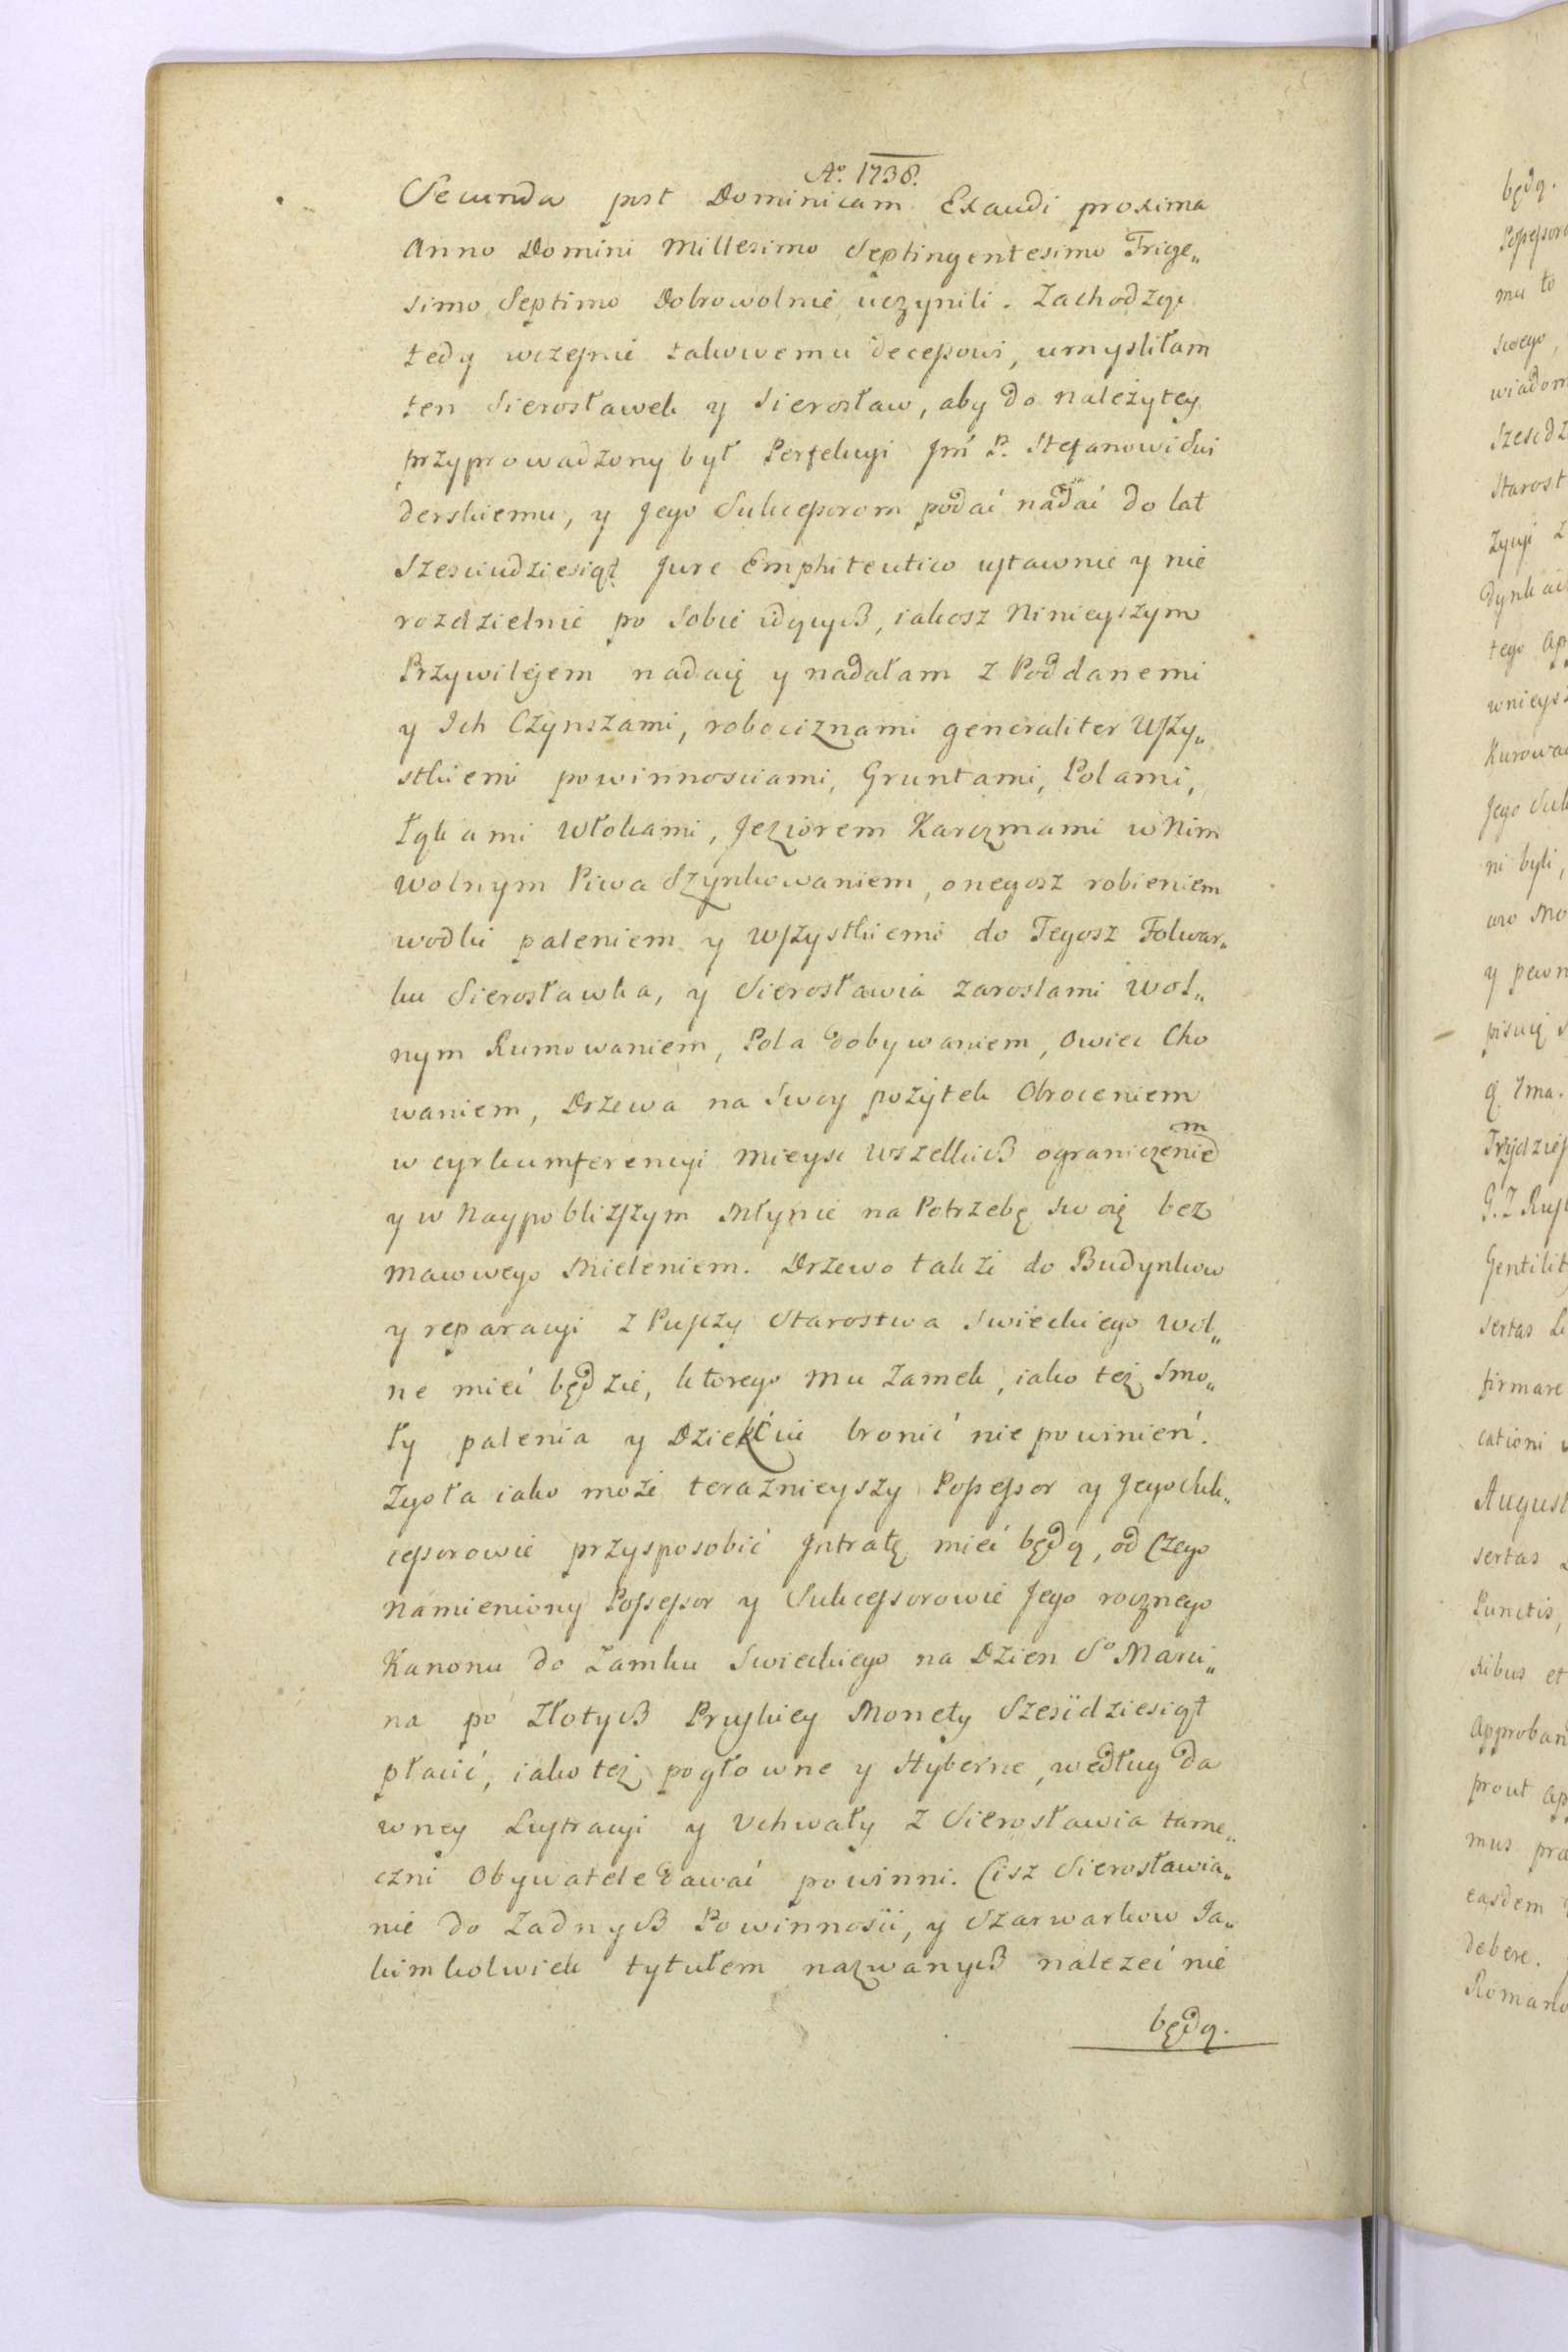 Aº. 1738.
Secunda post Dominicam Exaudi proxima
Anno Domini Millesimo Septingentesimo Trige„
simo Septimo Dobrowolnie uczynili. Zachodząc
tedy wczesnie takowemu decessowi, umysliłam
ten Sierosławek y Sierosław, aby do należytey
przyprowadzony był Perfekcyi Jmć P. Stefanowi Świ
derskiemu, y Jego Sukcessorom podać nadać do lat
Szesciudziesiąt Jure Emphiteutico ustawnie y nie
rozdzielnie po sobie idących, iakosz Ninieyszym
Przywilejem nadaię y nadałam z Poddanemi
y Ich Czynszami, robociznami generaliter Wszy„
stkiemi powinnosciami, Gruntami, Polami,
Łąkami Włokami, Jeziorem Karczmami w Nim
wolnym Piwa Szynkowaniem, onegosz robieniem
wodki paleniem y wszystkiemi do Tegosz Folwar„
ku Sierosławka, y Sierosławia zaroslami Wol„
nym Rumowaniem, Pola dobywaniem, Owiec Cho
waniem, Drzewa na Swoy pożytek Obroceniem
w cyrkumferencyi mieysc wszelkich ograniczenie m
y w Naypobliższym Młynie na Potrzebę swoię bez
Mawwego Mieleniem. Drzewo takze do Budynkow
y reparacyi z Puszzy Starostwa Swieckiego wol„
ne mieć będzie, ktorego mu Zamek, iako też Smo„
ły palenia y Dziekciu bronić nie powinień.
Zgoła iako może teraznieyszy Possessor y Jego Suk„
cessorowie przysposobić Jntratę mieć będą, od Czego
Namieniony Possessor y Sukcessorowie Jego rocznego
Kanonu do Zamku Swieckiego na Dzien Sº Marci„
na po Złotych Pruskiey Monety Szesćdziesiąt
płacić, iako też pogłowne y Hyberne, według da
wney Lustracyi y Uchwały z Sierosławia tame„
czni Obywatele dawać powinni. Cisz Sierosławia„
nie do Zadnych Powinnosci, y Szarwarkow Ja„
kimkolwiek tytułem nazwanych nalezeć nie
będą.
będą.
mu to
swego,
Starost
tego
ni byli,
Gentilit
firmare
cationi
August
sertas
Punctis,
Approban
mus
easdem
debere.
Romano